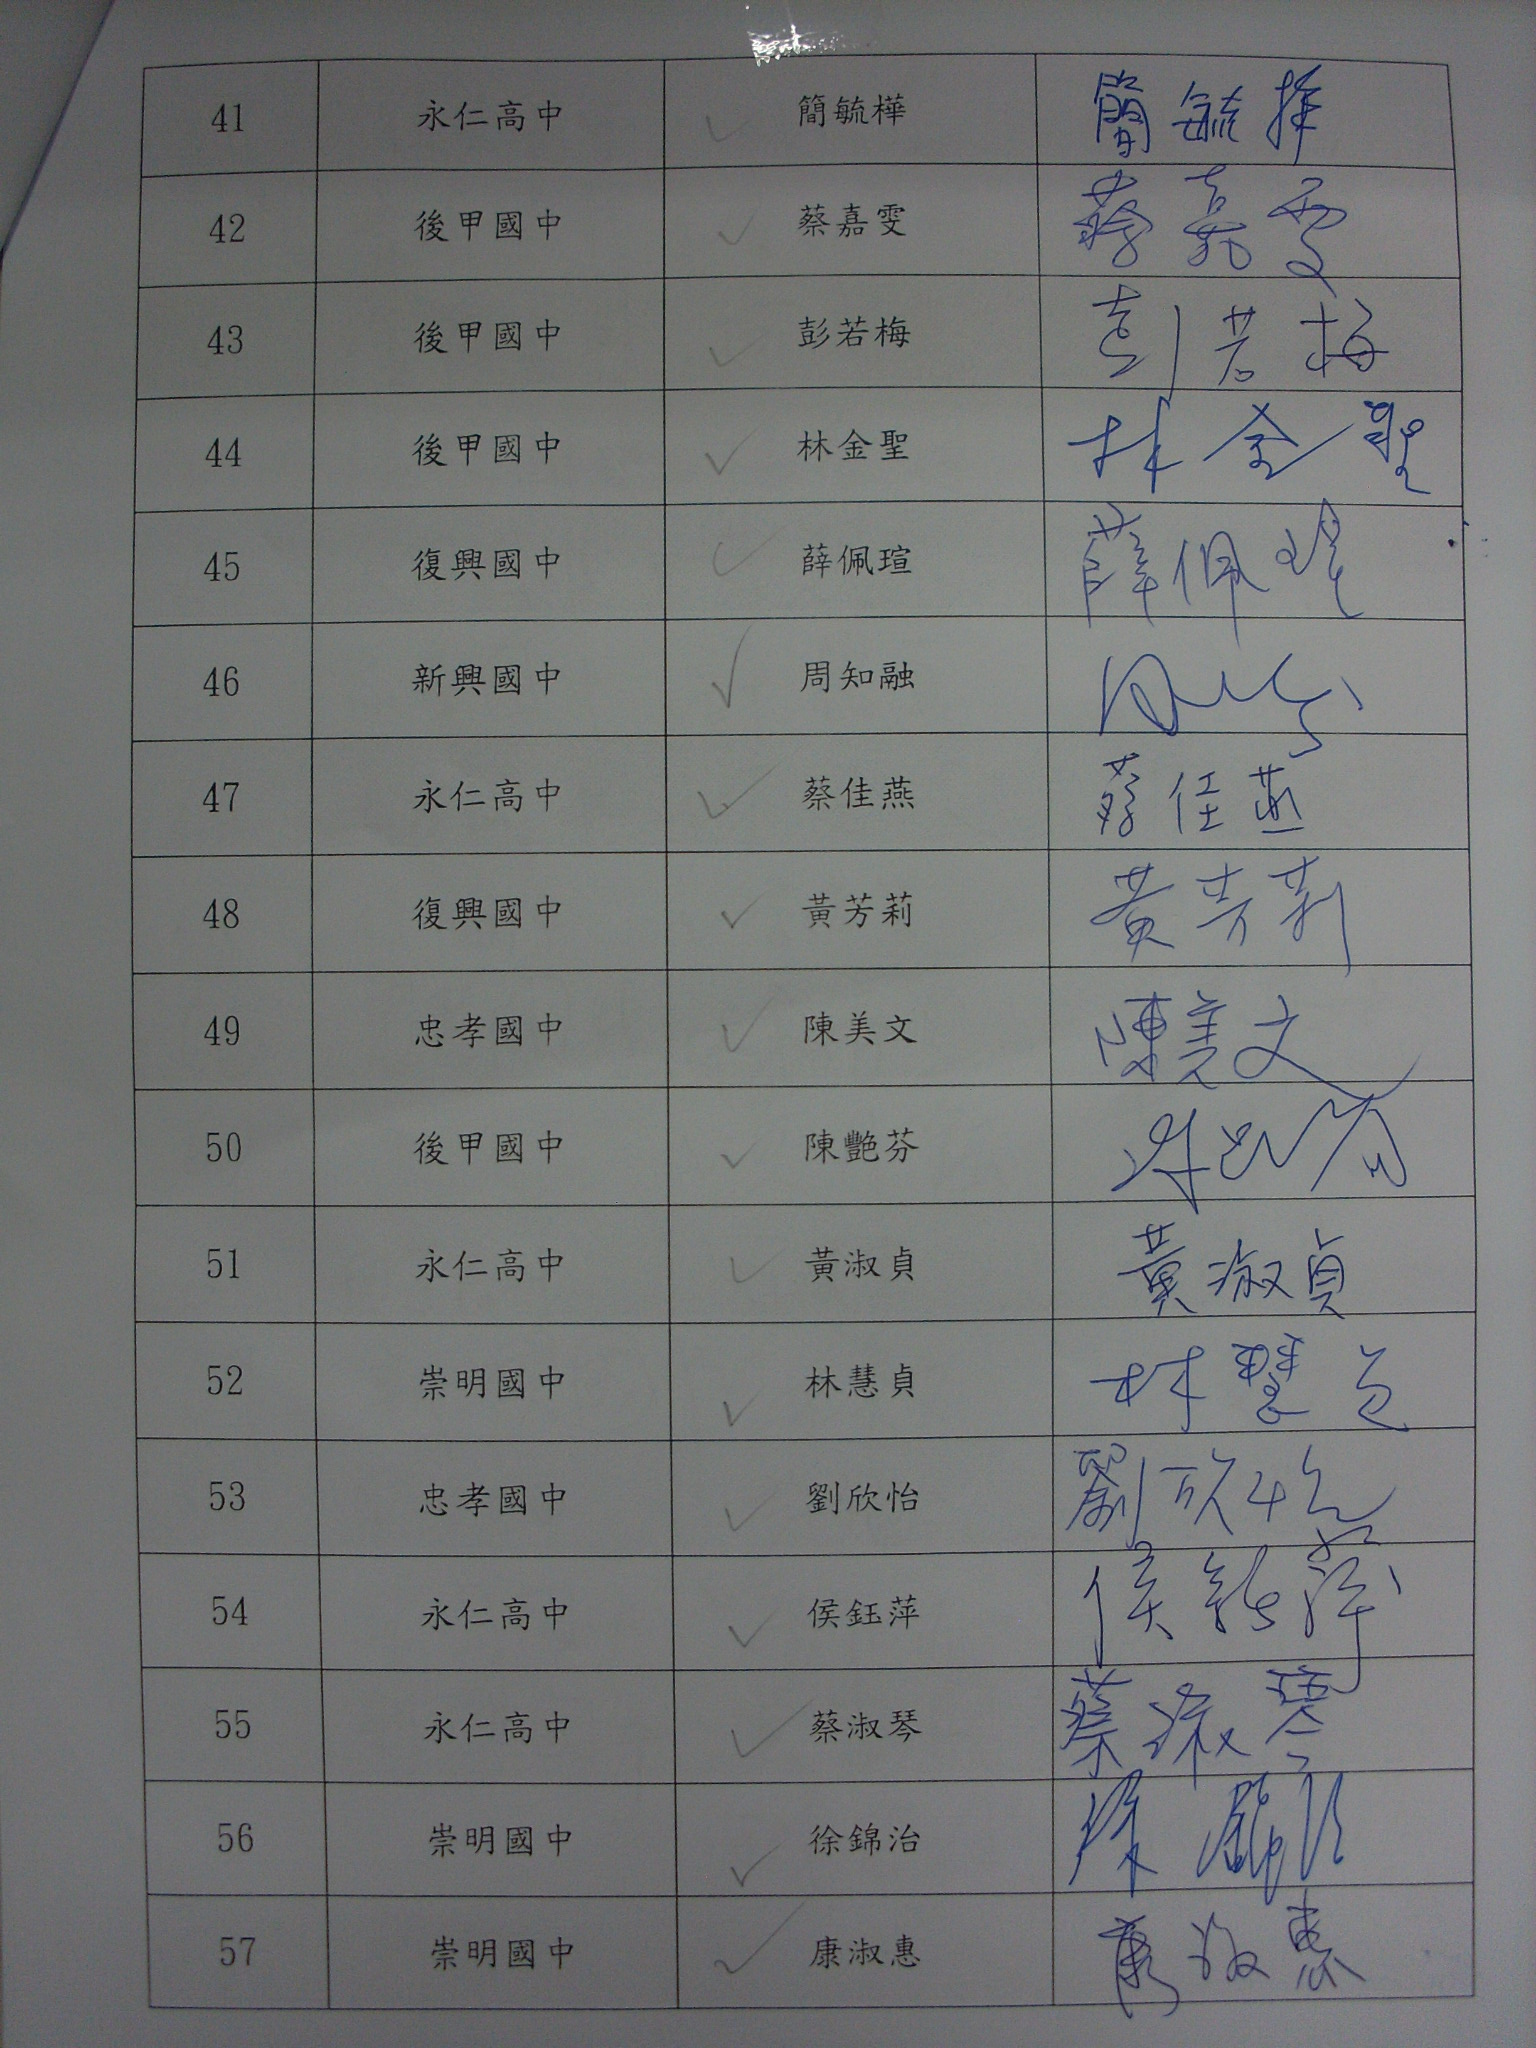 41 永仁高中 簡毓樺 簡毓樺
42 後甲國中 蔡嘉雯 蔡嘉雯
43 後甲國中 彭若梅 彭若梅
44 後甲國中 林金聖 林金聖
45 復興國中 薛佩瑄 薛佩瑄
46 新興國中 周知融
47 永仁高中 蔡佳燕 蔡佳燕
48 復興國中 黃芳莉 黃芳莉
49 忠孝國中 陳美文 陳美文
50 後甲國中 陳艷芬
51 永仁高中 黃淑貞 黃淑貞
52 崇明國中 林慧貞 林慧貞
53 忠孝國中 劉欣怡 劉欣怡
54 永仁高中 侯鈺萍 侯鈺萍
55 永仁高中 蔡淑琴 蔡淑琴
56 崇明國中 徐錦治
57 崇明國中 康淑惠 康淑惠